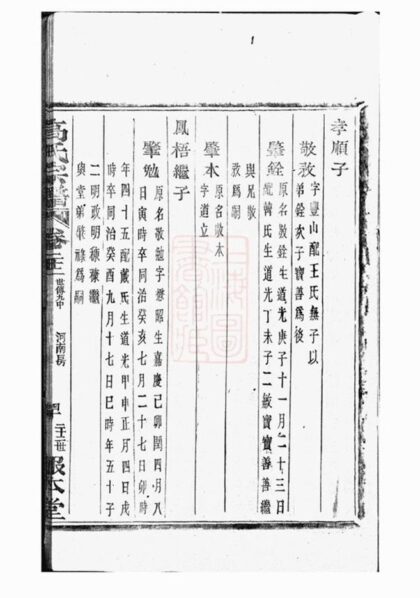 孝順子
敬敘
字豐山配王氏無子以
弟銓次子寶善爲後
肇銓
原名敦銓生道光庚子十一月二十三日
配韓氏生道光丁未子二敏寶寶善善繼
與兄敬
敘爲嗣
肇本
原名敦本
字道立
鳳梧繼子
肇勉
原名敬勉字懋昭生嘉慶己卯閏四月八
日寅時卒同治癸亥七月二十七日卯時
年四十五配戴氏生道光甲申正月四日戌
時卒同治癸酉九月十七日巳時年五十子
二明政明穗穗繼
與堂弟肇祿爲嗣
高氏宗譜
卷二十三
世傳九中
河南房
報本堂